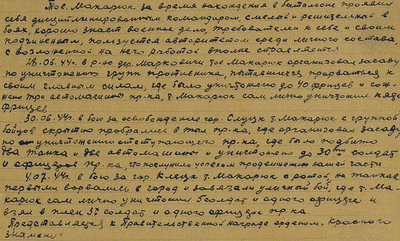 Тов. Макарюк за время нахождения в батальоне проявил
себя дисциплинированным командиром, смелой и решительной в
боях, хорошо знает военное дело, требователен к себе и своим
подчиненным, пользуется авторитетом среди личного состава
с возложенной на него работой вполне справляется.
28.06.44г. в р-не дер. Марковичи тов. Макарюк организовал засаду
по уничтожению групп противника, пытавшихся прорваться к
своим главным силам, где было уничтожено до 40 фрицев и сож-
жено три автомашины пр-ка, т. Макарюк сам лично уничтожил пять
фрицев.
30.06.44г. в бою за освобождение гор. Слуцк т. Макарюк с группой
бойцов скрытно пробрался в тыл пр-ка, где организовал засаду
по уничтожению отступающего пр-ка, где было подбито
два танка и две автомашины и уничтожено до 30 солдат
и офицеров пр-ка, что послужило успехом продвижению нашей части
4.07.44г. в бою за гор. Клецк т. Макарюк с ротой, на танках
первыми ворвались в город и завязали уличной бой, где т. Ма-
карюк сам лично уничтожил 5 солдат и одного офицера и
взял в плен 3х солдат и одного офицера пр-ка.
Представляется к Правительственной награде орденом „Красного
знамени"